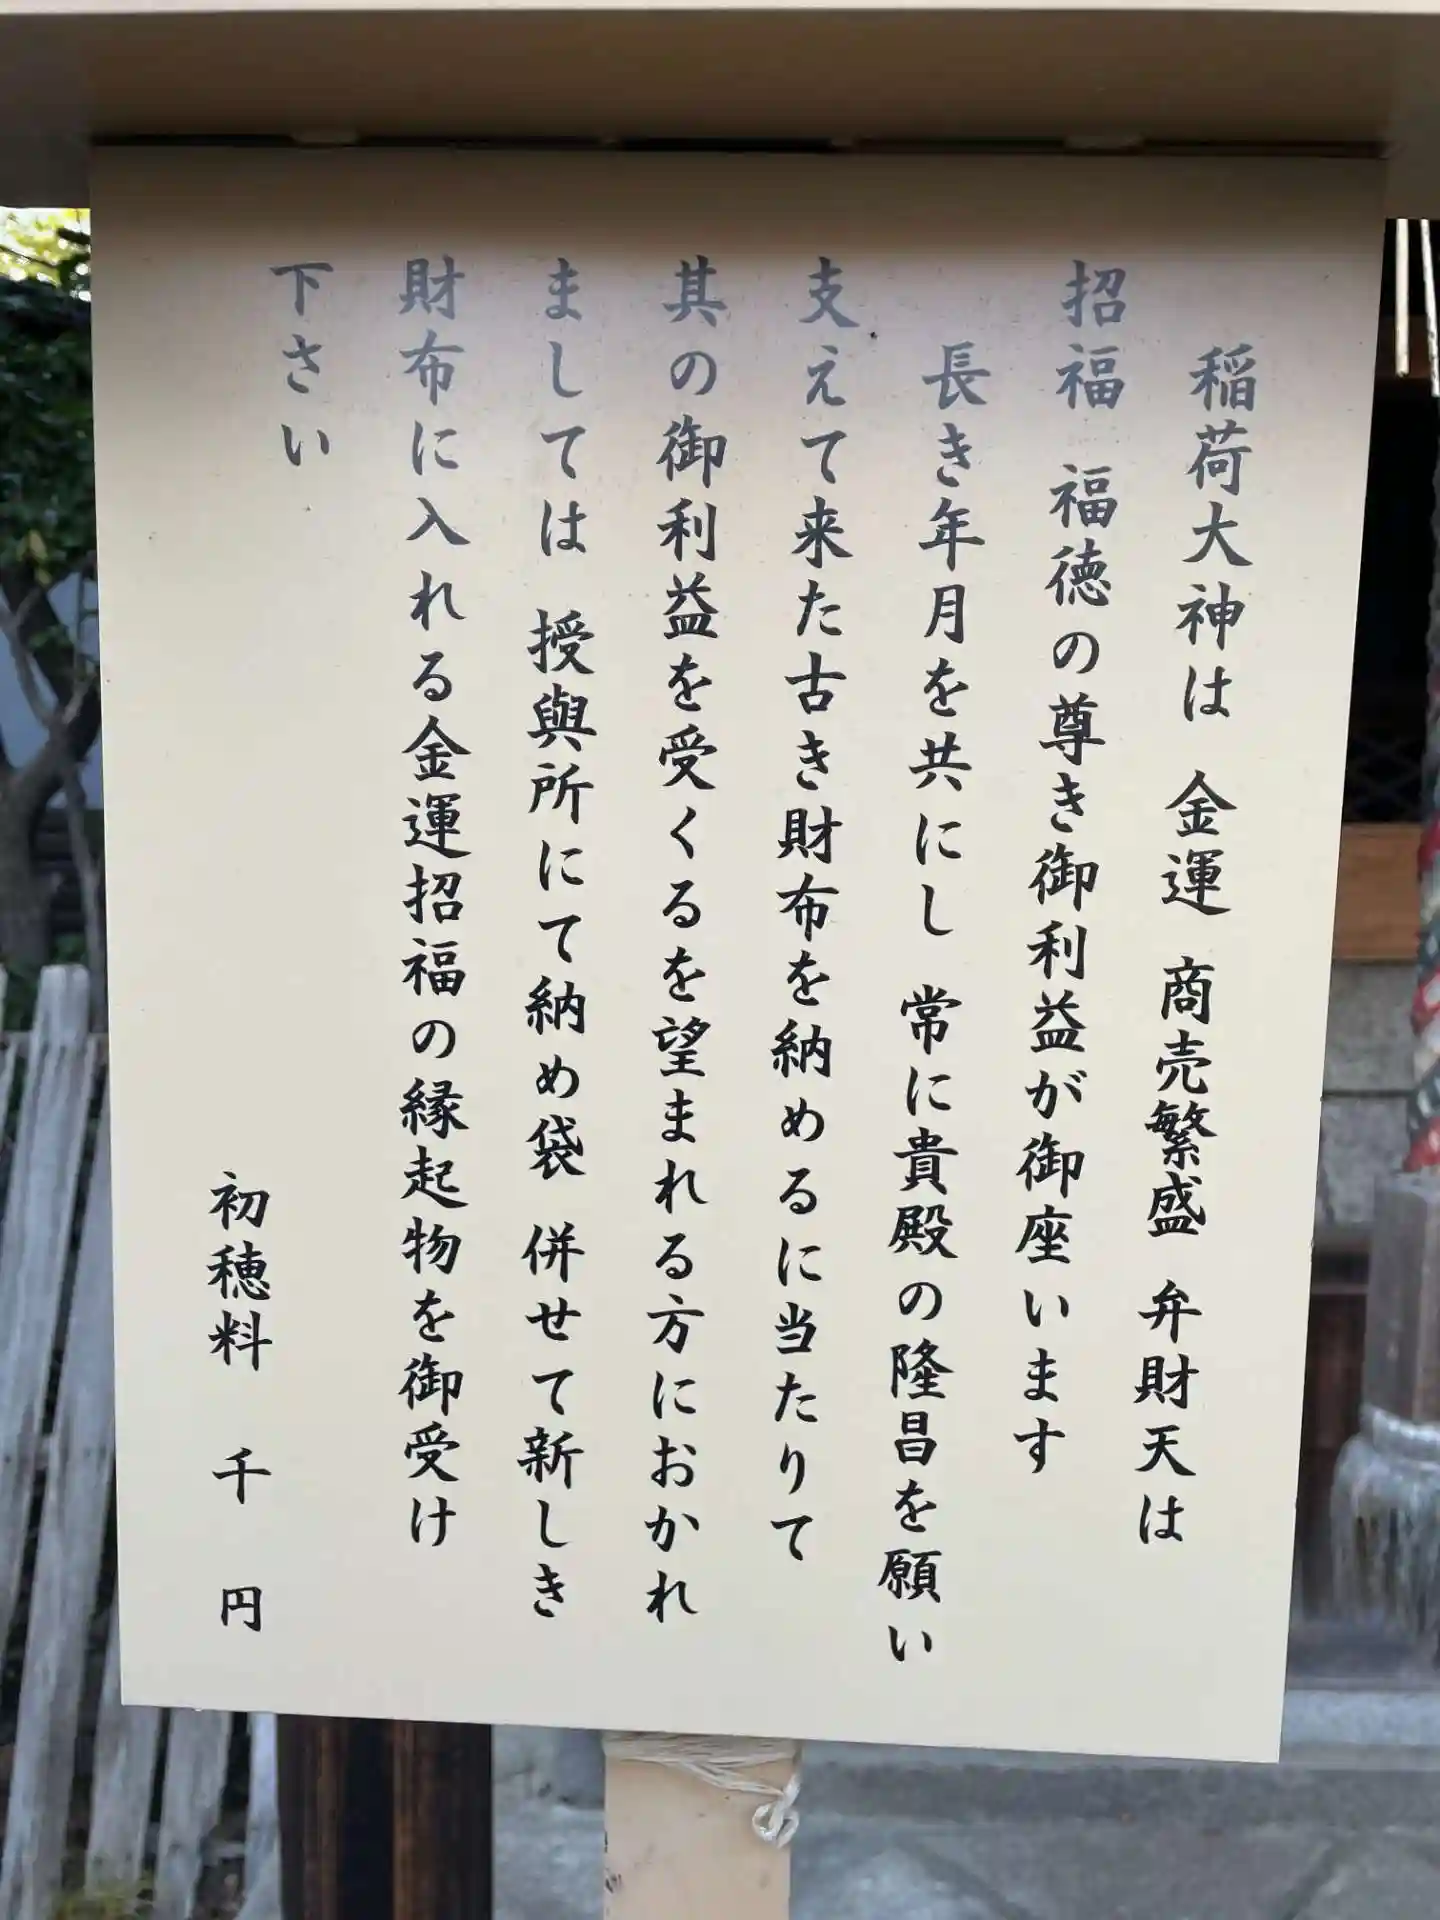 稲荷大神は 金運 商売繁盛 弁財天は
招福 福徳の尊き御利益が御座います
長き年月を共にし 常に貴殿の隆昌を願い
支えて来た古き財布を納めるに当たりて
其の御利益を受くるを望まれる方におかれ
ましては 授與所にて納め袋 併せて新しき
財布に入れる金運招福の縁起物を御受け
下さい
初穂料 千 円